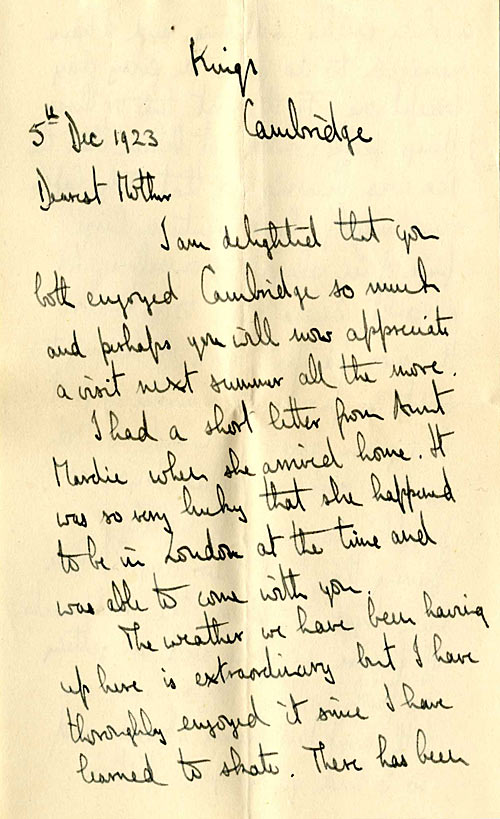 Kings
Cambridge
5th Dec 1923
Dearest Mother
I am delighted that you
both enjoyed Cambridge so much
and perhaps you will now appreciate
a visit next summer all the more.
I had a short letter from Aunt
Mardie when she arrived home. It
was so very lucky that she happened
to be in London at the time and
was able to come with you.
The weather we have been having
up here is extraordinary but I have
thoroughly enjoyed it since I have
learned to skate. There has been